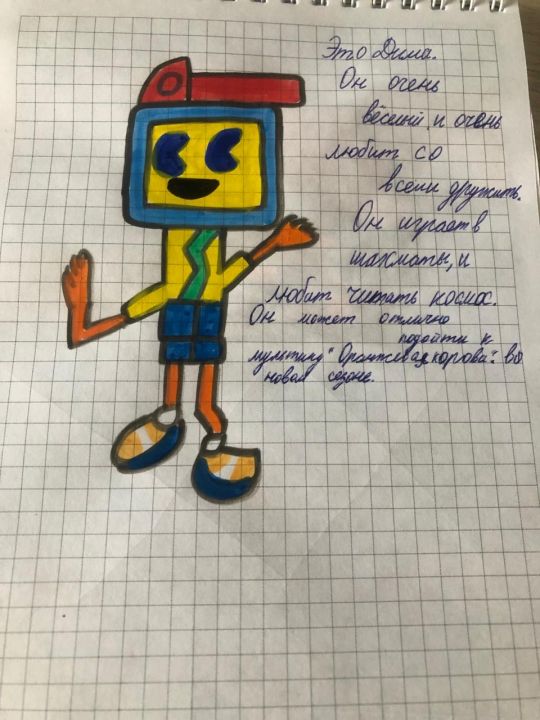 Это Дима.
Он очень
весёлый, и очень
любит со
всеми дружить.
Он играет в
шахматы, и
любит читать космос.
Он может отлично
подойти к
мультику "Оранжевая корова": во
новом сезоне.